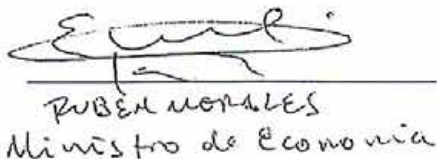 RUBÉN MORALES
Ministro de Economia